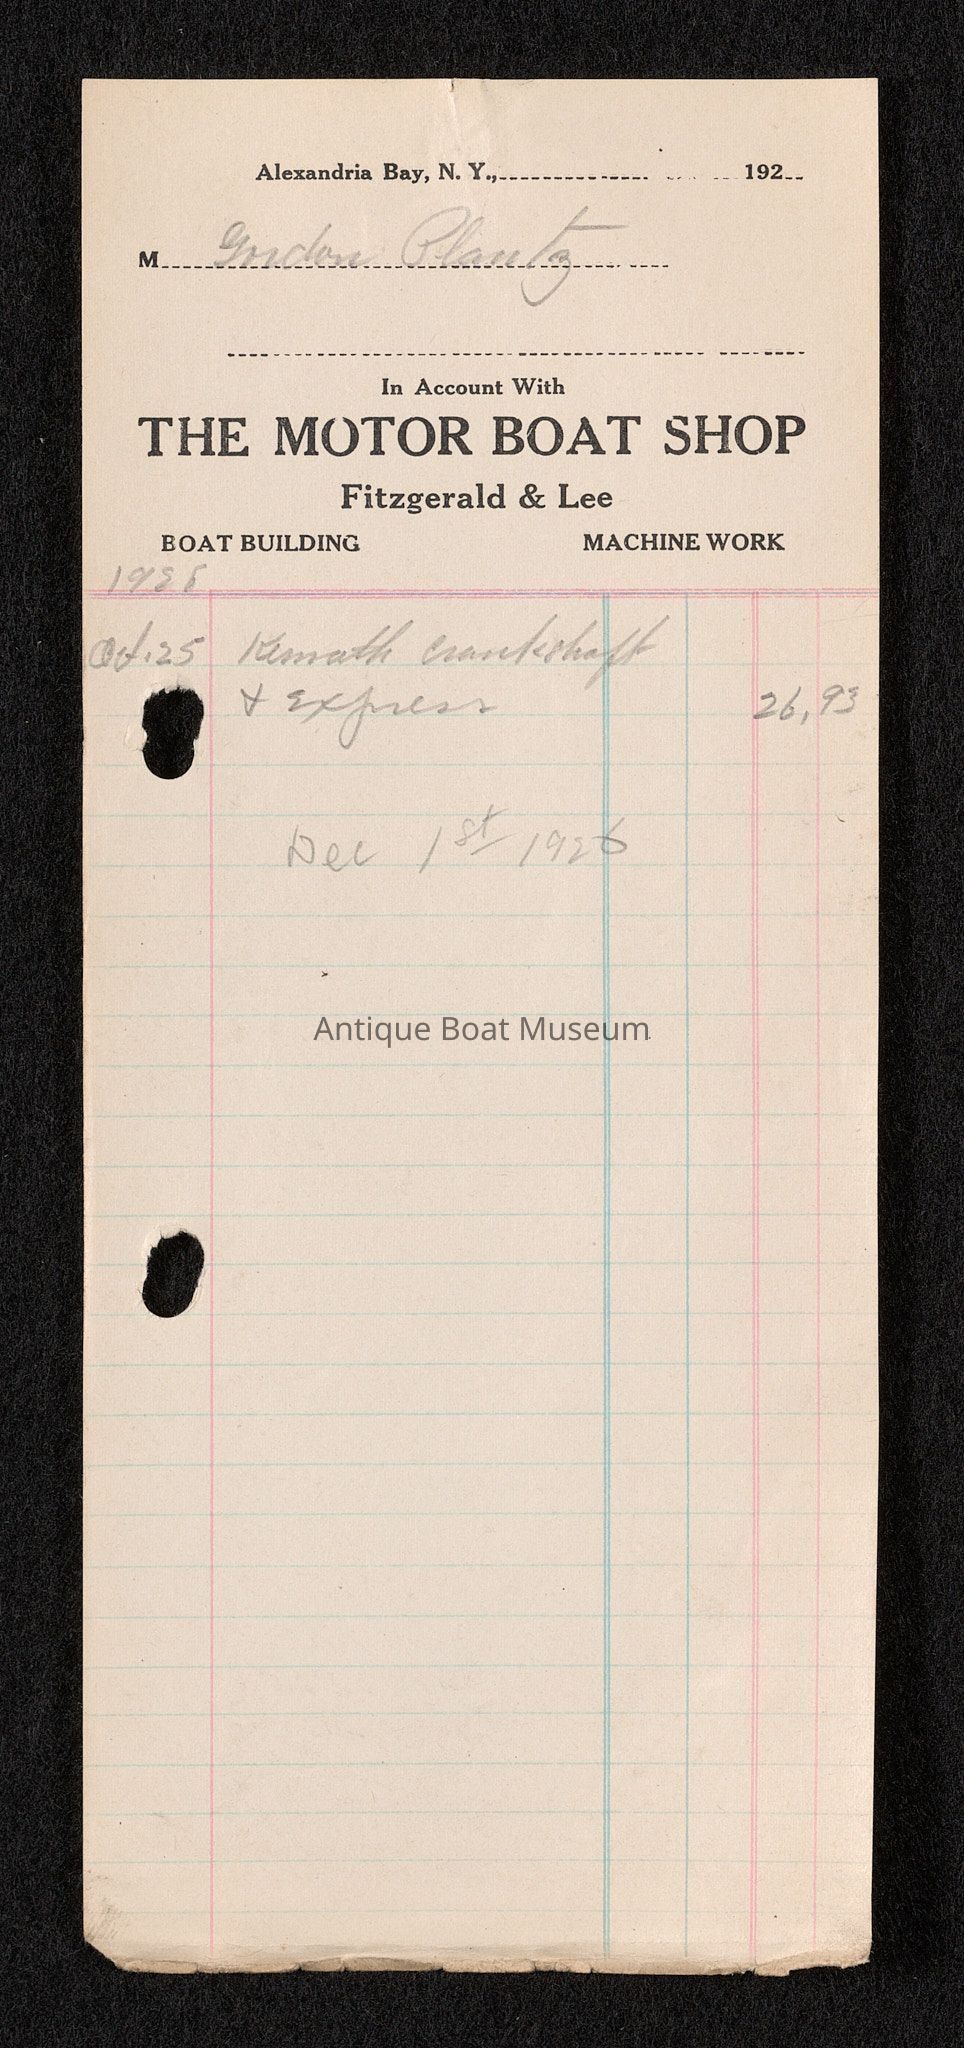 Alexandria Bay, N. Y., 192
M Gordon Plantz
In Account With
THE MOTOR BOAT SHOP
Fitzgerald & Lee
BOAT BUILDING MACHINE WORK
Oct. 25 Kermath Crankshaft
+ Express 26,93
Dec 1st 1926
Antique Boat Museum